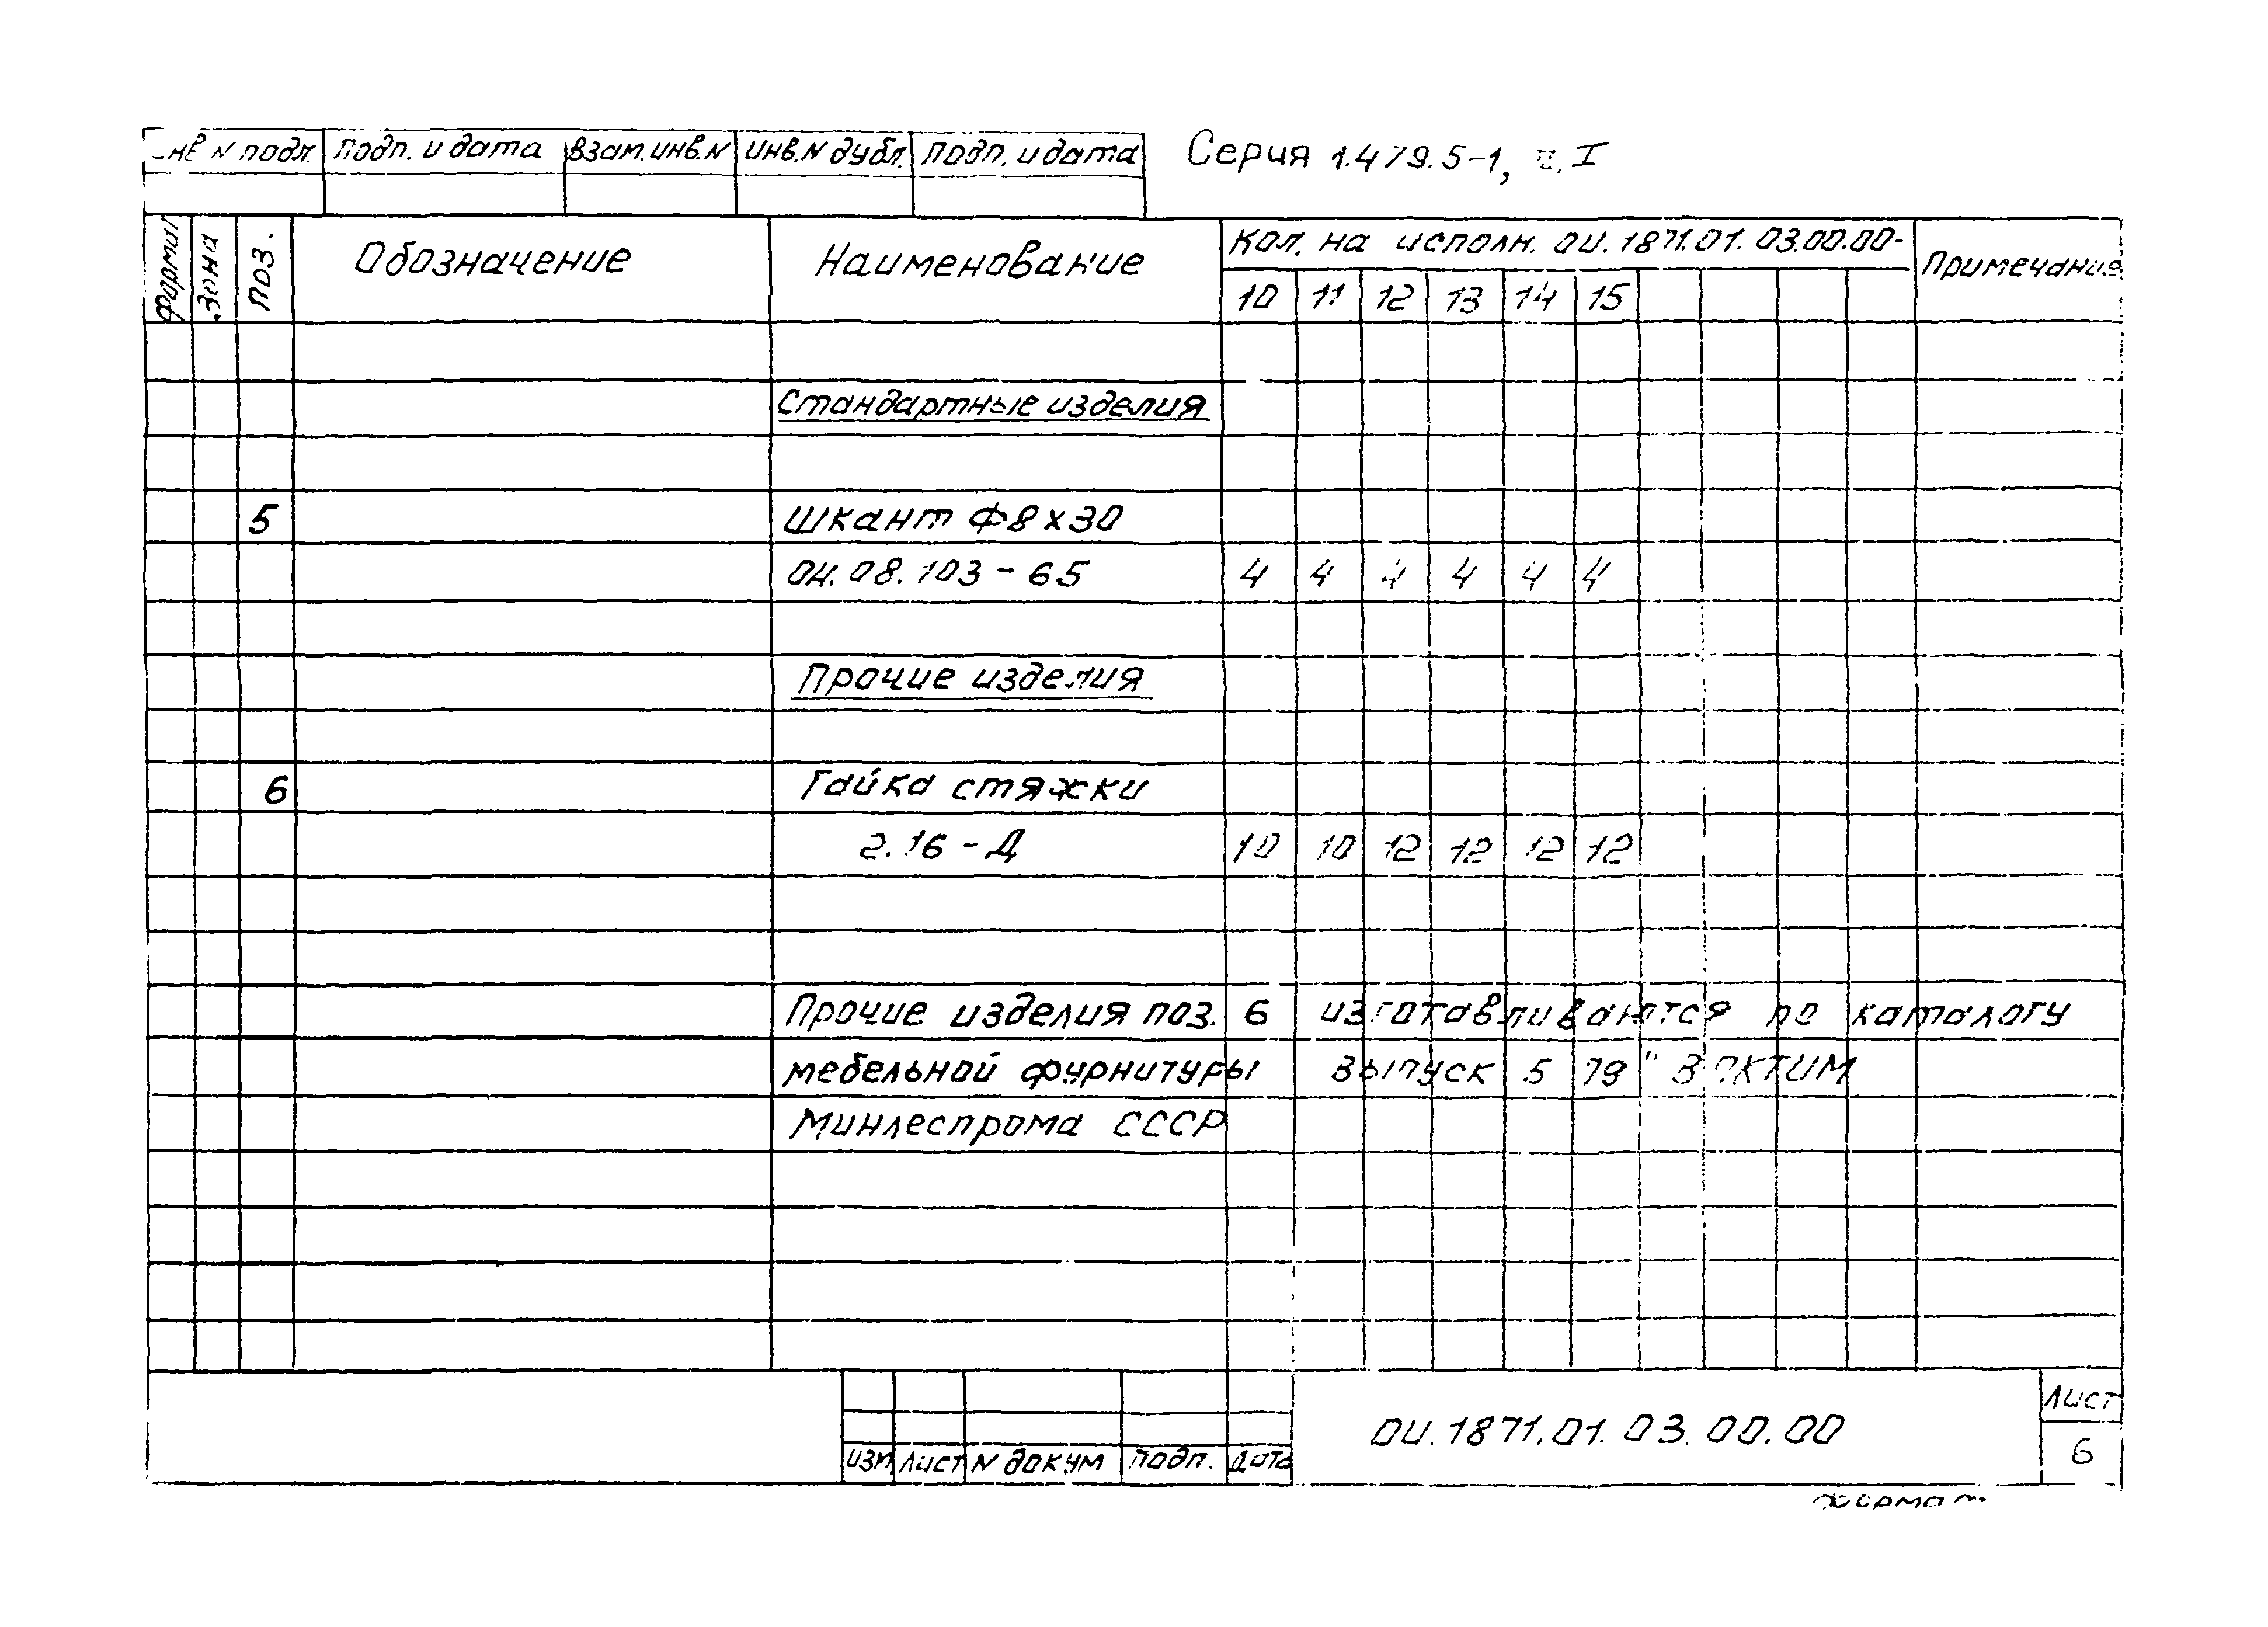 инв N подл. подп. и дата взам.инв.N инв.N дубл. подп. и дата Серия 1.479.5-1, ч. I
формат зона поз. Обозначение Наименование Кол. на исполн. ОИ.1871.01.03.00.00- Примечание
10 11 12 13 14 15
Стандартные изделия
5 Шкант Ф8х30
ОН.08.103-65 4 4 4 4 4 4
Прочие изделия
6 Гайка стяжки
2.16-Д 10 10 12 12 12 12
Прочие изделия поз. 6 изготавливаются по каталогу
мебельной фурнитуры выпуск 5 79" ВПКТИМ
Минлеспрома СССР
ОИ.1871.01.03.00.00 Лист
изм лист N докум подп. дата 6
формат